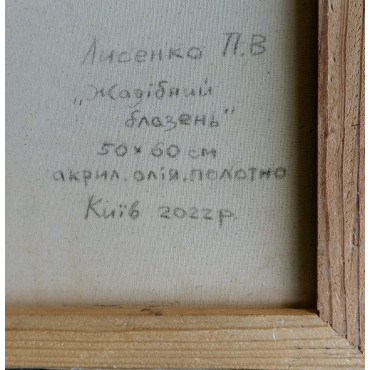 Лисенко П.В
„Жадібний
блазень"
50×60 см
акрил.олія.полотно
Київ 2022р.